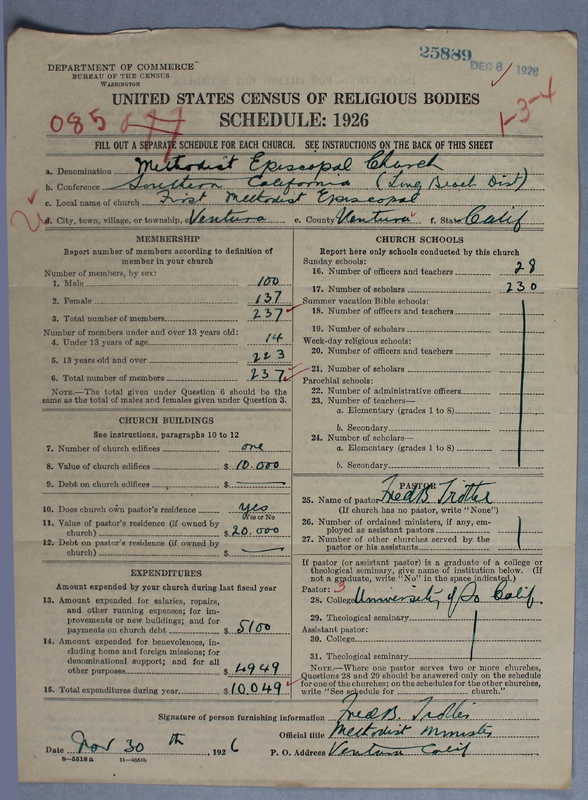 25889
DEC 6 1926
DEPARTMENT OF COMMERCE
BUREAU OF THE CENSUS
WASHINGTON
UNITED STATES CENSUS OF RELIGIOUS BODIES
085
1-3-4
SCHEDULE: 1926
FILL OUT A SEPARATE SCHEDULE FOR EACH CHURCH. SEE INSTRUCTIONS ON THE BACK OF THIS SHEET
a. Denomination Methodist Episcopal Church
b. Conference Southern California (Long Beach Dist)
c. Local name of church First Methodist Episcopal
d. City, town, village, or township, Ventura e. County Ventura f. State Calif
MEMBERSHIP
Report number of members according to definition of
member in your church
Number of members, by sex:
1. Male 100
2. Female 137
3. Total number of members 237
Number of members under and over 13 years old:
4. Under 13 years of age 14
5. 13 years old and over 223
6. Total number of members 237
NOTE.—The total given under Question 6 should be the
same as the total of males and females given under Question 3.
CHURCH BUILDINGS
See instructions, paragraphs 10 to 12
7. Number of church edifices one
8. Value of church edifices $ 10.000
9. Debt on church edifices $
10. Does church own pastor's residence yes
Yes or No
11. Value of pastor's residence (if owned by
church) $ 20.000
12. Debt on pastor's residence (if owned by
church) $
EXPENDITURES
Amount expended by your church during last fiscal year
13. Amount expended for salaries, repairs,
and other running expenses; for im-
provements or new buildings; and for
payments on church debt $ 5100
14. Amount expended for benevolences, in-
cluding home and foreign missions; for
denominational support; and for all
other purposes $ 4949
15. Total expenditures during year $ 10.049
CHURCH SCHOOLS
Report here only schools conducted by this church
Sunday schools:
16. Number of officers and teachers 28
17. Number of scholars 230
Summer vacation Bible schools:
18. Number of officers and teachers
19. Number of scholars
Week-day religious schools:
20. Number of officers and teachers
21. Number of scholars
Parochial schools:
22. Number of administrative officers
23. Number of teachers—
a. Elementary (grades 1 to 8)
b. Secondary
24. Number of scholars—
a. Elementary (grades 1 to 8)
b. Secondary
PASTOR
25. Name of pastor Fred B. Trotter
(If church has no pastor, write "None")
26. Number of ordained ministers, if any, em-
ployed as assistant pastors
27. Number of other churches served by the
pastor or his assistants
If pastor (or assistant pastor) is a graduate of a college or
theological seminary, give name of institution below. (If
not a graduate, write "No" in the space indicated.)
Pastor: 3
28. College University of So Calif.
29. Theological seminary
Assistant pastor:
30. College
31. Theological seminary
NOTE.—Where one pastor serves two or more churches,
Questions 28 and 29 should be answered only on the schedule
for one of the churches; on the schedules for the other churches,
write "See schedule for church."
Signature of person furnishing information Fred B. Trotter
Official title Methodist Minister
Date Nov 30 th, 1926 P. O. Address Ventura Calif
8—5518 a